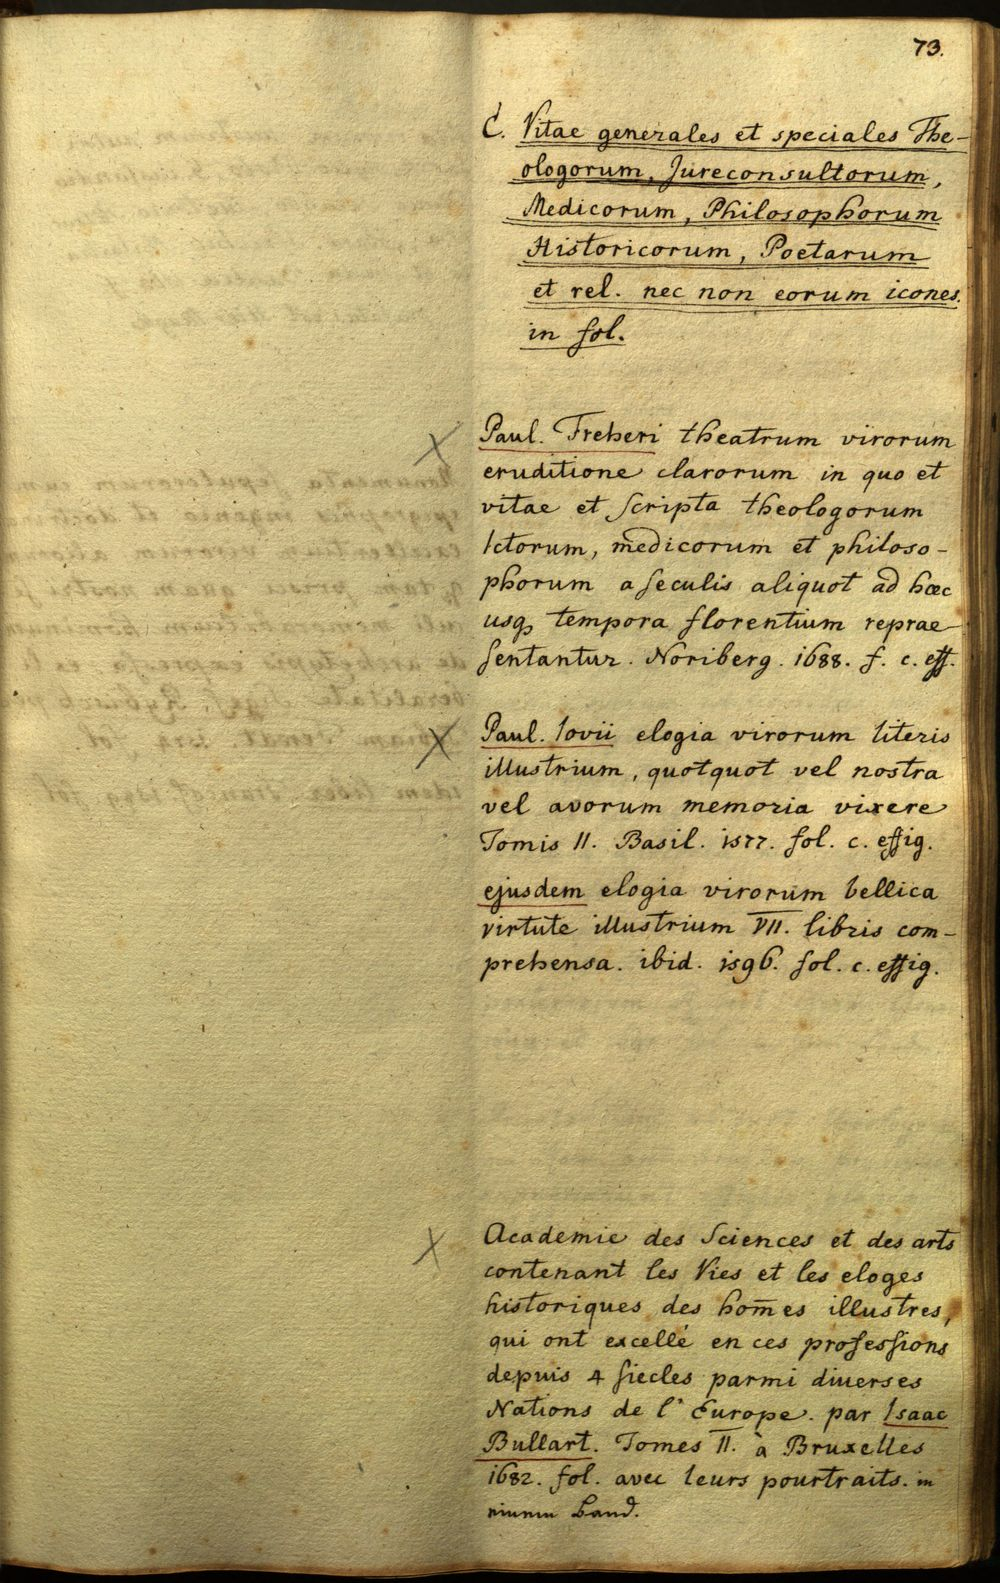 73.
C. Vitae generales et speciales The-
ologorum, Jureconsultorum,
Medicorum, Philosophorum
Historicorum, Poetarum
et rel. nec non eorum icones.
in fol.
Paul. Freheri theatrum virorum
eruditione clarorum in quo et
vitae et scripta theologorum
Ictorum, medicorum et philoso-
phorum a seculis aliquot ad hæc
usq tempora florentium reprae-
sentantur. Noriberg. 1688. f. c. eff.
Paul. Iovii elogia virorum literis
illustrium, quotquot vel nostra
vel avorum memoria vixere
Tomis II. Basil. 1577. fol. c. effig.
ejusdem elogia virorum bellica
virtute illustrium VII. libris com-
prehensa. ibid. 1596. fol. c. effig.
Academie des Sciences et des arts
contenant les Vies et les eloges
historiques des hom̄es illustres,
qui ont excellé en ces professions
depuis 4 siecles parmi diuerses
Nations de l'Europe. par Isaac
Bullart. Tomes II. à Bruxelles
1682. fol. avec leurs pourtraits. in
Band.